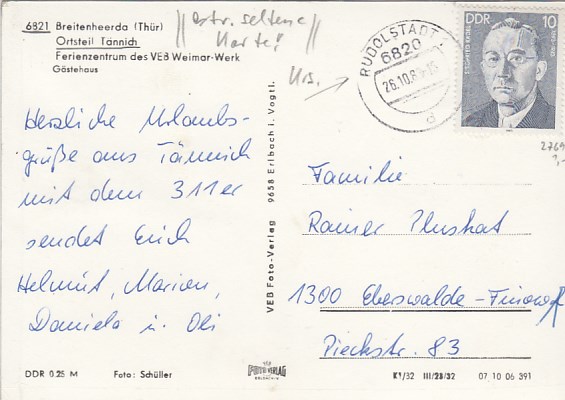 6821 Breitenheerda (Thür)
Ortsteil Tännich
Ferienzentrum des VEB Weimar-Werk
Gästehaus
extr. seltene
Karte!
RUDOLSTADT 1
6820
26.10.8
d
DDR 10
Herzliche Urlaubs-
grüße aus Tännich
mit dem 311er
sendet Euch
Helmut, Marion,
Daniela u. Oli
VEB Foto-Verlag 9658 Erlbach i. Vogtl.
2769
1,-
Familie
Rainer Pluskat
1300 Eberswalde-Finow
Pieckstr. 83
DDR 0.25 M Foto: Schüller
FOTO VERLAG
ERLBACH
K1/32 III/23/32 07 10 06 391